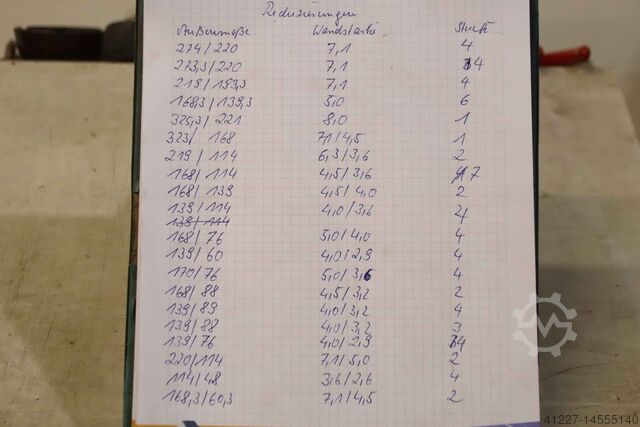 Reduzierungen
Außenmaße Wandstärke Stück
274/220 7,1 4
273,3/220 7,1 4
219/193,3 7,1 4
168,3/139,3 5,0 6
325,3/221 8,0 1
323/168 7,1/4,5 1
219/114 6,3/3,6 2
168/114 4,5/3,6 7
168/139 4,5/4,0 2
139/114 4,0/3,6 4
139/114
168/76 5,0/4,0 4
139/60 4,0/2,9 4
170/76 5,0/3,6 4
168/88 4,5/3,2 2
139/89 4,0/3,2 4
139/88 4,0/3,2 3
139/76 4,0/2,9 4
220/114 7,1/5,0 2
114/48 3,6/2,6 4
168,3/60,3 7,1/4,5 2
41227-14555140